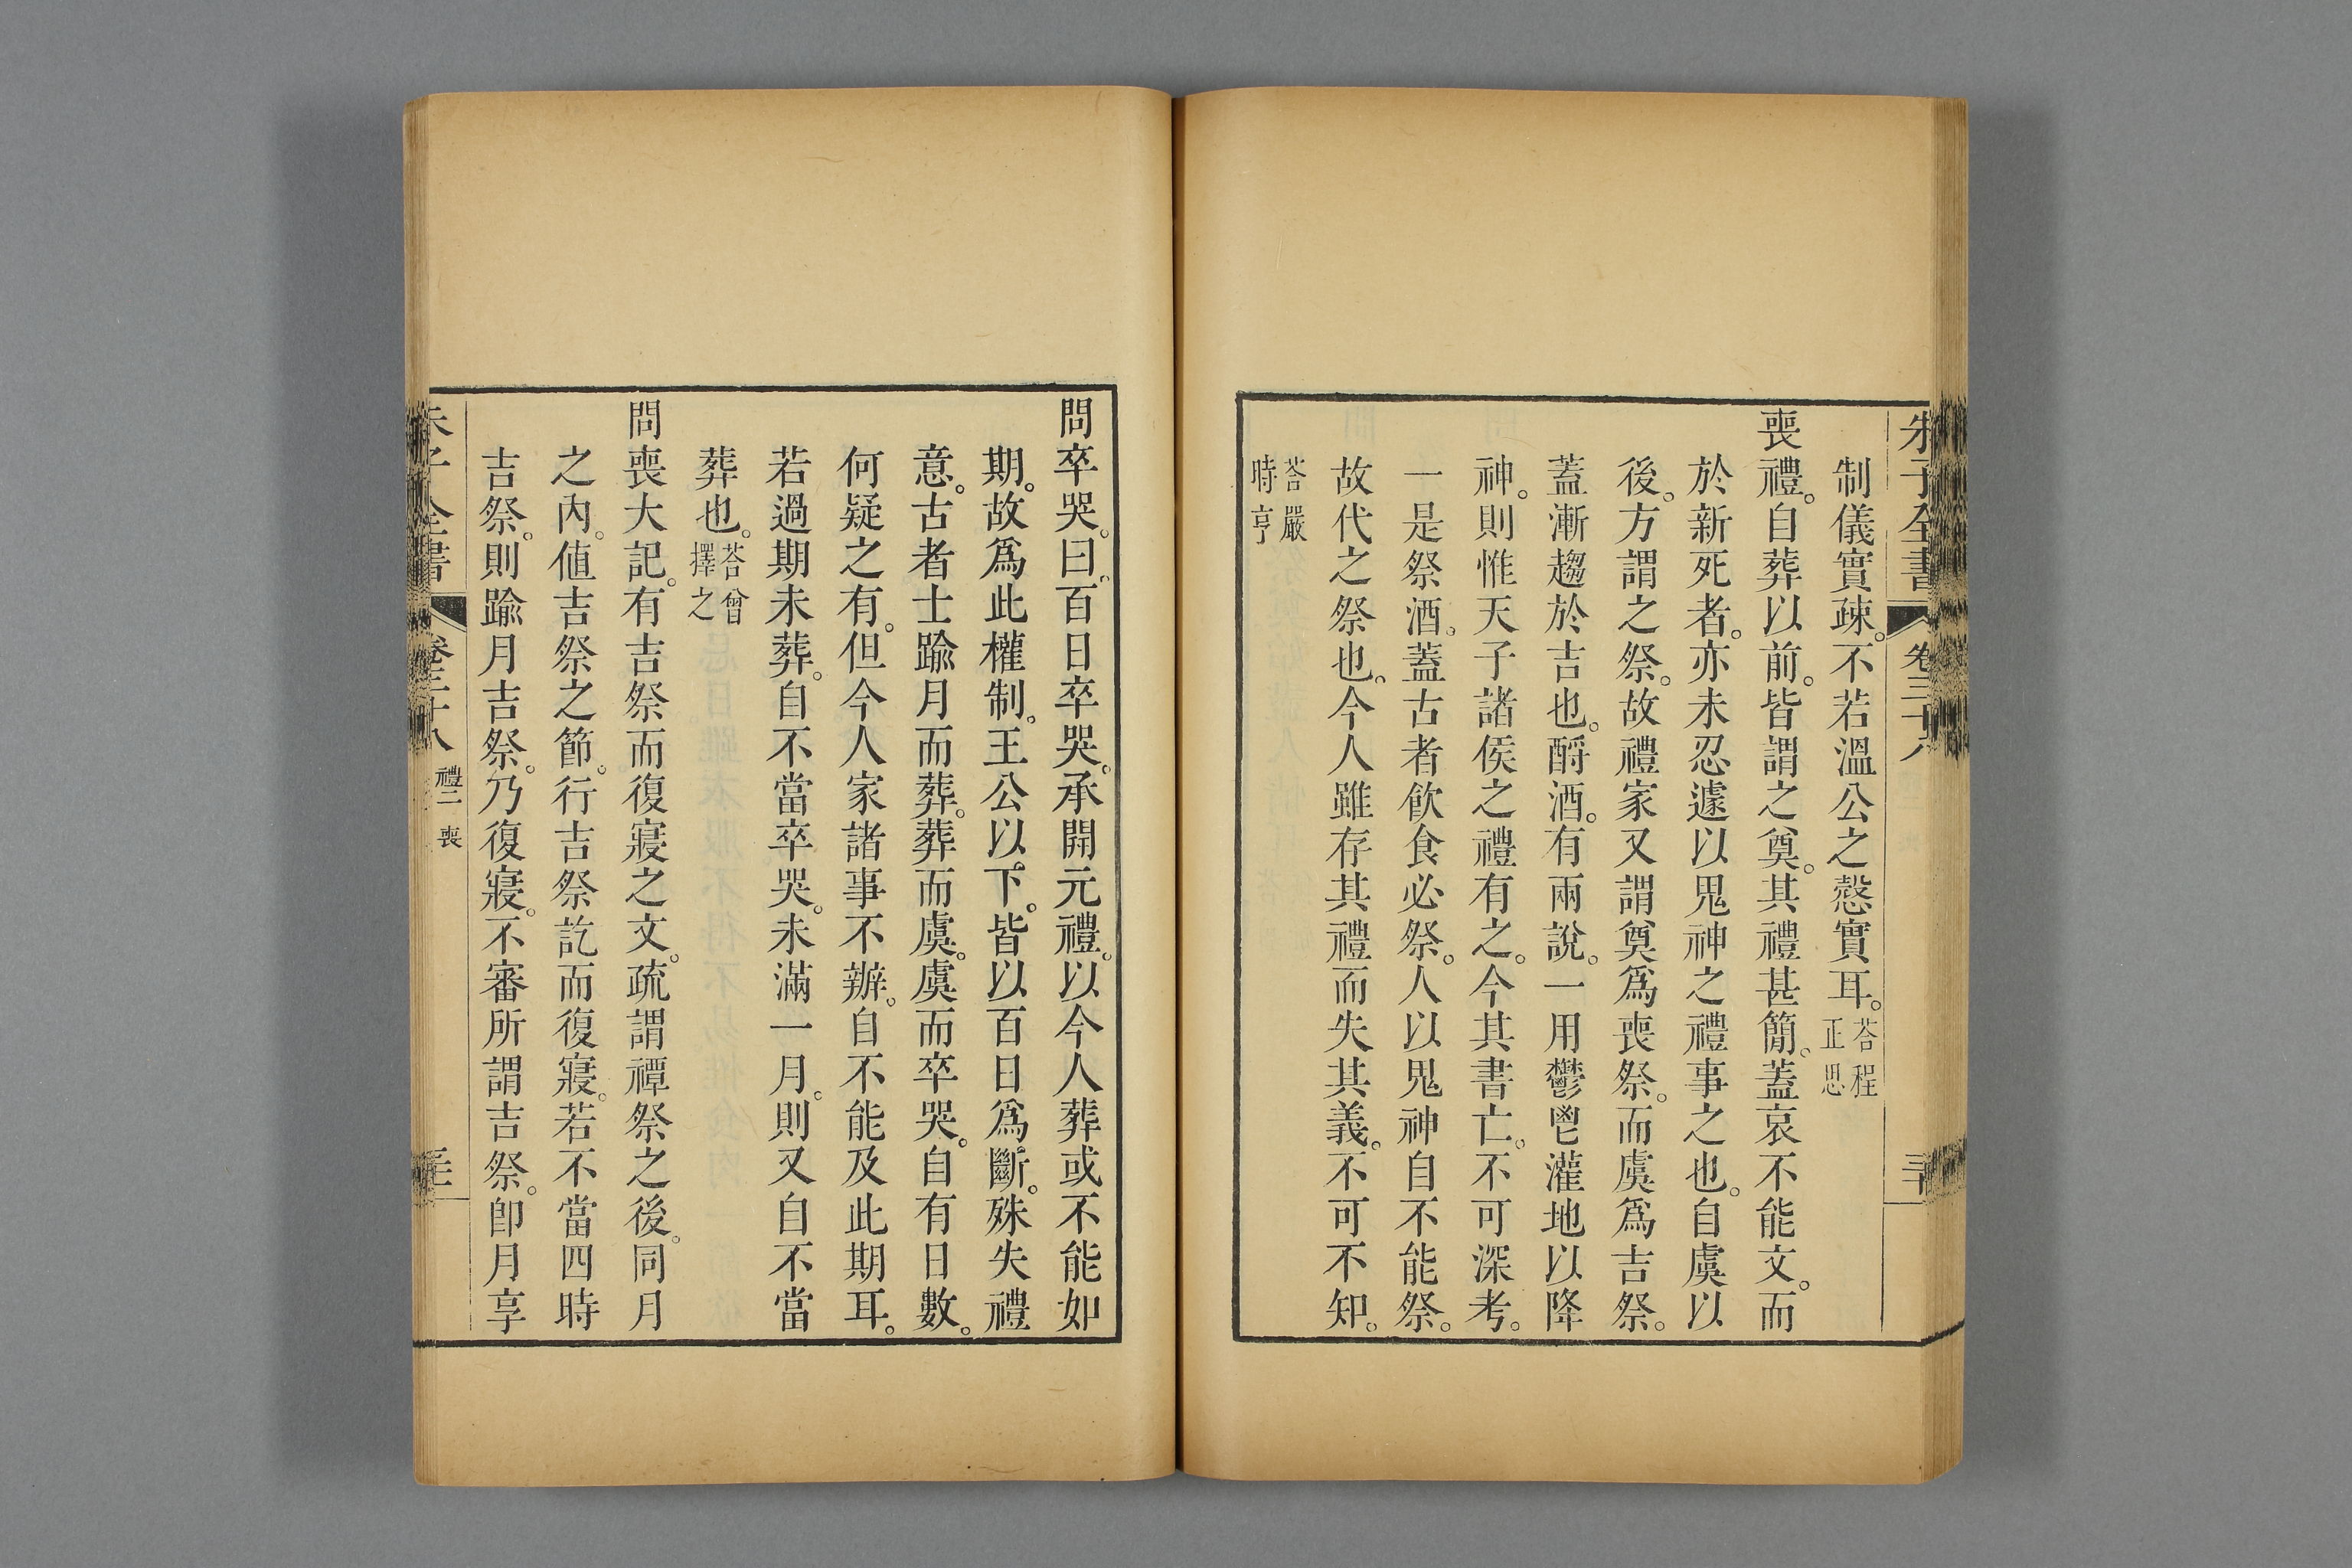 朱子全書 卷三十八 三十
制儀實疎。不若溫公之慤實耳。荅程正思
喪禮。自葬以前。皆謂之奠。其禮甚簡。蓋哀不能文。而
於新死者。亦未忍遽以鬼神之禮事之也。自虞以
後。方謂之祭。故禮家又謂奠爲喪祭。而虞爲吉祭。
蓋漸趨於吉也。酹酒。有兩說。一用鬱鬯灌地以降
神。則惟天子諸侯之禮有之。今其書亡。不可深考。
一是祭酒。蓋古者飲食必祭。人以鬼神自不能祭。
故代之祭也。今人雖存其禮而失其義。不可不知。
荅嚴時亨
問卒哭。曰。百日卒哭。承開元禮。以今人葬或不能如
期。故爲此權制。王公以下。皆以百日爲斷。殊失禮
意。古者士踰月而葬。葬而虞。虞而卒哭。自有日數。
何疑之有。但今人家諸事不辦。自不能及此期耳。
若過期未葬。自不當卒哭。未滿一月。則又自不當
葬也。荅曾擇之
問喪大記。有吉祭而復寢之文。疏謂禫祭之後。同月
之內。值吉祭之節。行吉祭訖而復寢。若不當四時
吉祭。則踰月吉祭。乃復寢。不審所謂吉祭。卽月享
朱子全書 卷三十八 禮二 喪